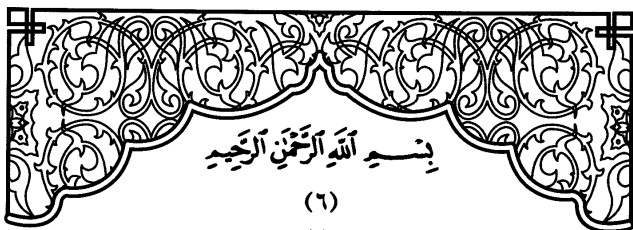 بِسْمِ ٱللَّهِ ٱلرَّحْمَٰنِ ٱلرَّحِيمِ
(٦)